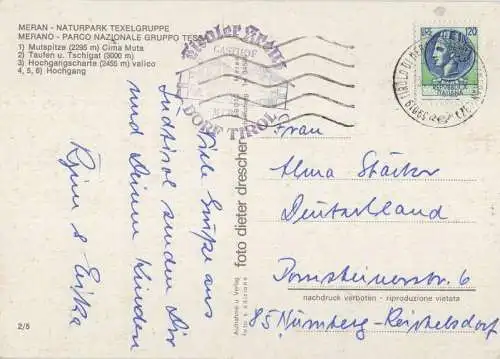 MERAN - NATURPARK TEXELGRUPPE
MERANO - PARCO NAZIONALE GRUPPO TESSA
1) Mutspitze (2295 m) Cima Muta
2) Taufen u. Tschigat (3000 m)
3) Hochgangscharte (2455 m) valico
4, 5, 6) Hochgang
Tiroler Kreuz
GASTHOF
DORF TIROL
LIRE 120
TIROLO DI
39019
Viele Grüße aus
Südtirol senden Dir
und Deinen Kindern
& Erika
foto dieter drescher
Aufnahme u. Verlag
foto & edizione
Frau
Alma Stärker
Deutschland
6
nachdruck verboten - riproduzione vietata
85 Nürnberg-Reichelsdorf
2/5